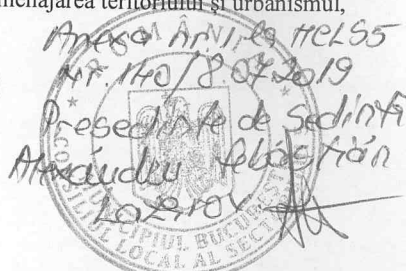 amenajarea teritoriului și urbanismul,
Anexa nr.1 la HCLS5
nr. 140/8.07.2019
Președinte de Ședință
Alexandru Sebastian
ROMÂNIA
MUNICIPIUL BUCUREȘTI
CONSILIUL LOCAL AL SECT